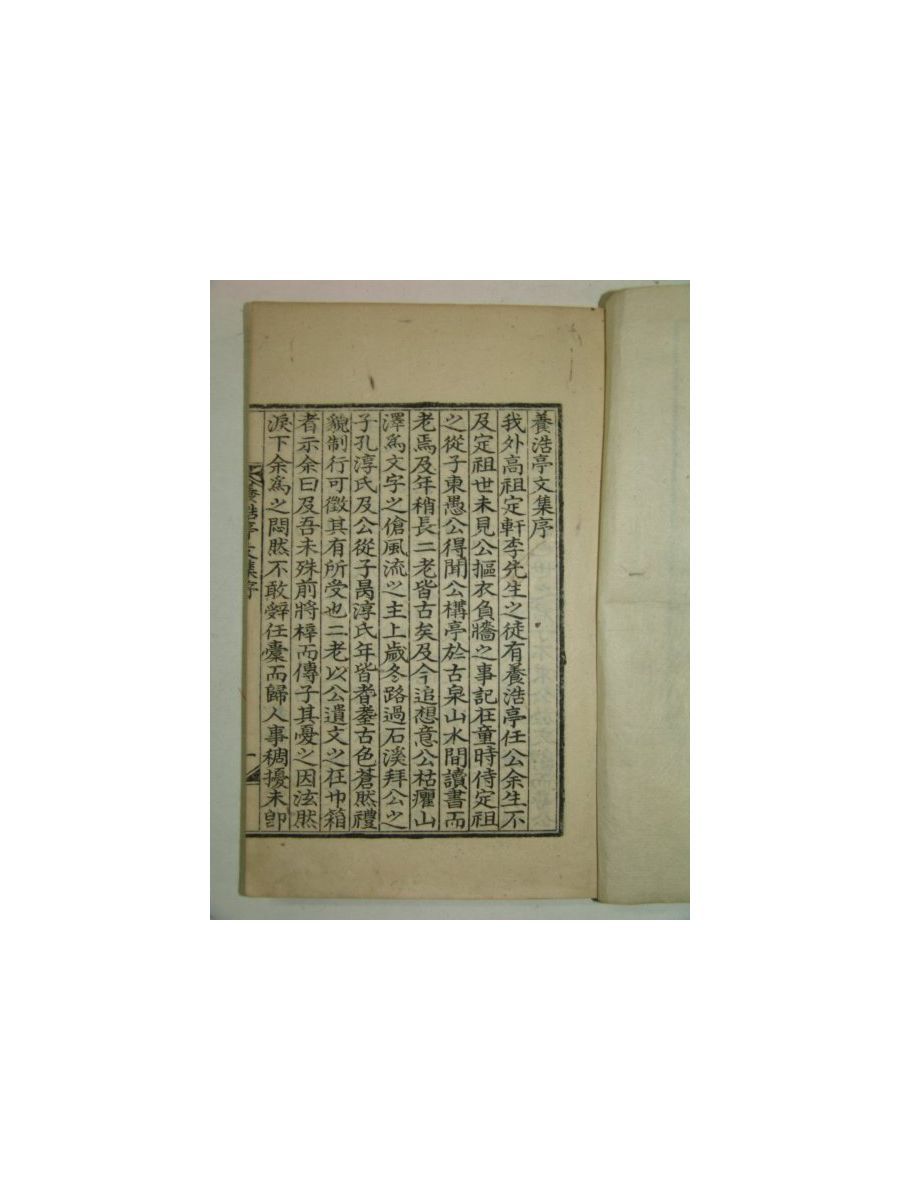 養浩亭文集序
我外高祖定軒李先生之徒有養浩亭任公余生不
及定祖世未見公摳衣負牆之事記在童時侍定祖
之從子東愚公得聞公構亭於古泉山水間讀書而
老焉及年稍長二老皆古矣及今追想意公枯癯山
澤爲文字之傖風流之主上歲冬路過石溪拜公之
子孔淳氏及公從子昺淳氏年皆耆耋古色蒼然禮
貌制行可徵其有所受也二老以公遺文之在巾箱
者示余曰及吾未殊前將梓而傳子其憂之因泫然
淚下余爲之悶然不敢辭任橐而歸人事稠擾未卽
養浩亭文集序
一